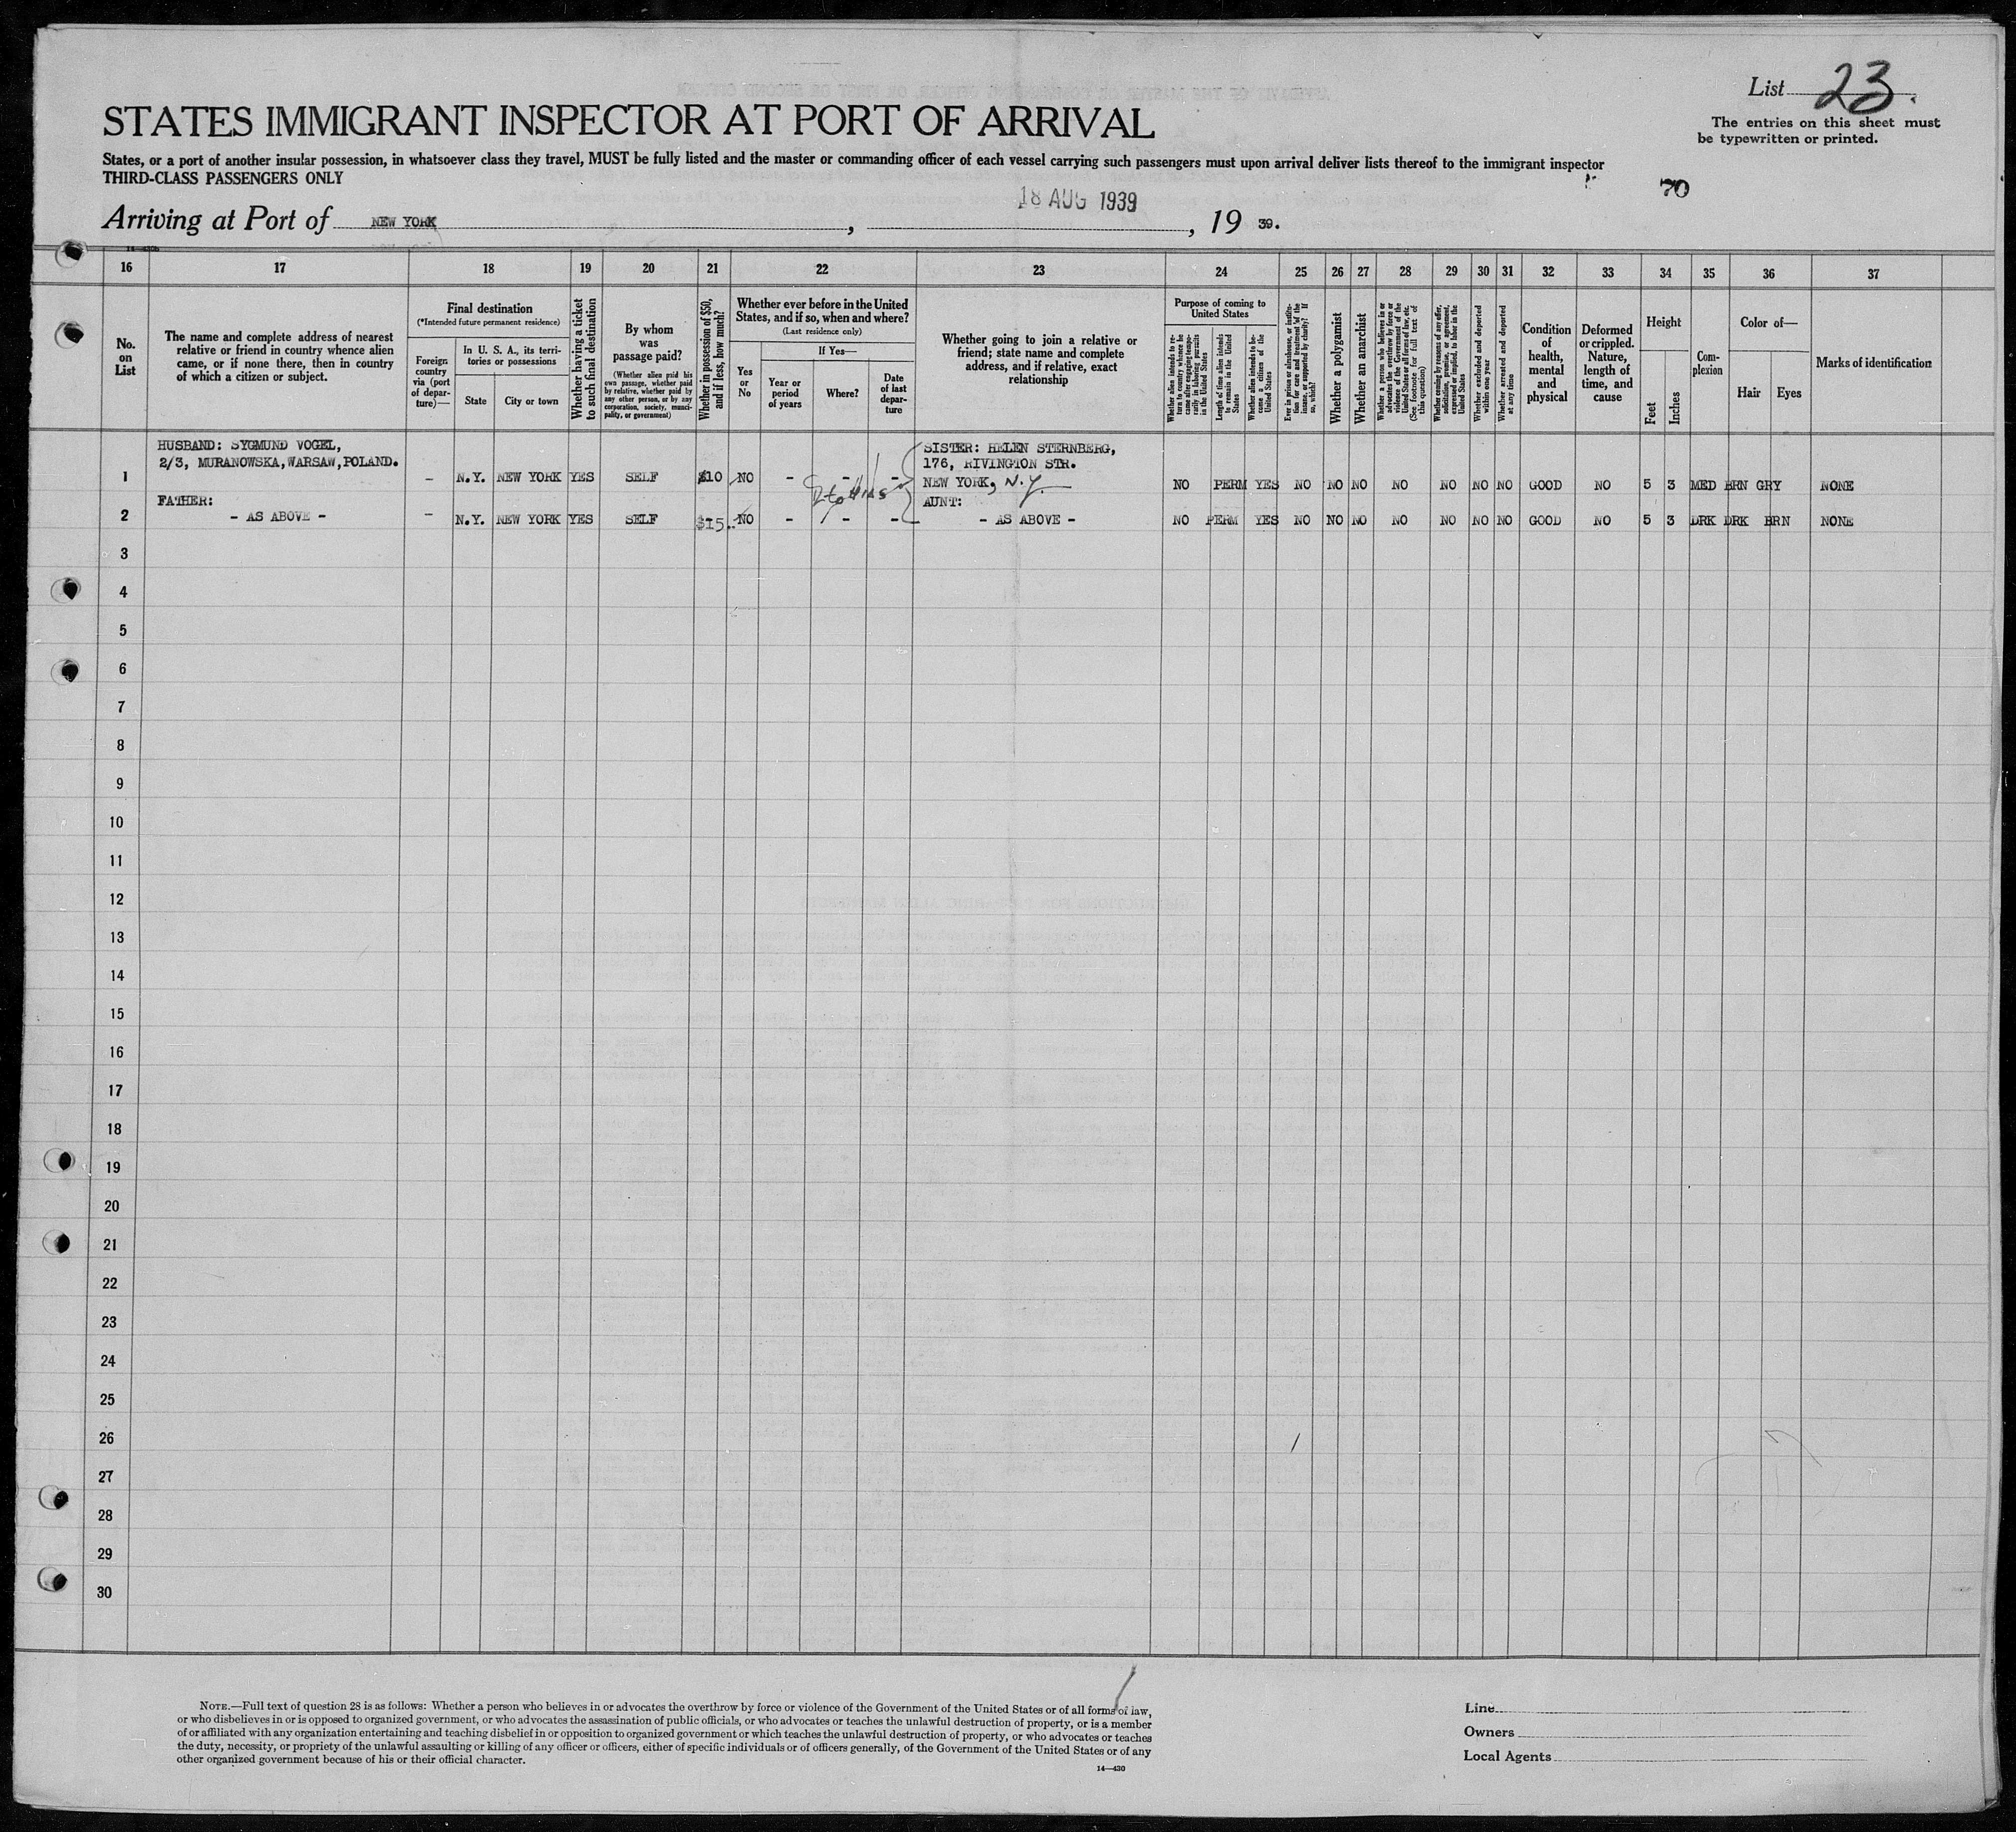 List 23.
The entries on this sheet must
be typewritten or printed.
STATES IMMIGRANT INSPECTOR AT PORT OF ARRIVAL
States, or a port of another insular possession, in whatsoever class they travel, MUST be fully listed and the master or commanding officer of each vessel carrying such passengers must upon arrival deliver lists thereof to the immigrant inspector
THIRD-CLASS PASSENGERS ONLY
70
18 AUG 1939
Arriving at Port of NEW YORK, , 19 39.
16 17 18 19 20 21 22 23 24 25 26 27 28 29 30 31 32 33 34 35 36 37
No. on List
The name and complete address of nearest
relative or friend in country whence alien
came, or if none there, then in country
of which a citizen or subject.
Final destination
(*Intended future permanent residence)
Foreign
country
via (port
of depar-
ture)—
In U. S. A., its terri-
tories or possessions
State
City or town
Whether having a ticket
to such final destination
By whom
was
passage paid?
(Whether alien paid his
own passage, whether paid
by relative, whether paid by
any other person, or by any
corporation, society, munici-
pality, or government)
Whether in possession of $50,
and if less, how much?
Whether ever before in the United
States, and if so, when and where?
(Last residence only)
Yes
or
No
If Yes—
Year or
period
of years
Where?
Date
of last
depar-
ture
Whether going to join a relative or
friend; state name and complete
address, and if relative, exact
relationship
Purpose of coming to
United States
Whether alien intends to re-
turn to country whence he
came after engaging tempo-
rarily in laboring pursuits
in the United States
Length of time alien intends
to remain in the United
States
Whether alien intends to be-
come a citizen of the
United States
Ever in prison or almshouse, or institu-
tion for care and treatment of the
insane, or supported by charity? If
so, which?
Whether a polygamist
Whether an anarchist
Whether a person who believes in or
advocates the overthrow by force or
violence of the Government of the
United States or all forms of law, etc.
(See footnote for full text of
this question)
Whether coming by reasons of any offer,
solicitation, promise, or agreement,
expressed or implied, to labor in the
United States
Whether excluded and deported
within one year
Whether arrested and deported
at any time
Condition
of
health,
mental
and
physical
Deformed
or crippled.
Nature,
length of
time, and
cause
Height
Feet
Inches
Com-
plexion
Color of—
Hair
Eyes
Marks of identification
HUSBAND: SYGMUND VOGEL,
2/3, MURANOWSKA,WARSAW,POLAND.
SISTER: HELEN STERNBERG,
176, RIVINGTON STR.
NEW YORK, N.Y.
1 – N.Y. NEW YORK YES SELF $10 NO – – – NO PERM YES NO NO NO NO NO NO NO GOOD NO 5 3 MED BRN GRY NONE
FATHER:
AUNT:
2 - AS ABOVE - – N.Y. NEW YORK YES SELF $15 NO – – – - AS ABOVE - NO PERM YES NO NO NO NO NO NO NO GOOD NO 5 3 DRK DRK BRN NONE
3
4
5
6
7
8
9
10
11
12
13
14
15
16
17
18
19
20
21
22
23
24
25
26
27
28
29
30
NOTE.—Full text of question 28 is as follows: Whether a person who believes in or advocates the overthrow by force or violence of the Government of the United States or of all forms of law,
or who disbelieves in or is opposed to organized government, or who advocates the assassination of public officials, or who advocates or teaches the unlawful destruction of property, or is a member
of or affiliated with any organization entertaining and teaching disbelief in or opposition to organized government or which teaches the unlawful destruction of property, or who advocates or teaches
the duty, necessity, or propriety of the unlawful assaulting or killing of any officer or officers, either of specific individuals or of officers generally, of the Government of the United States or of any
other organized government because of his or their official character.
14—430
Line
Owners
Local Agents